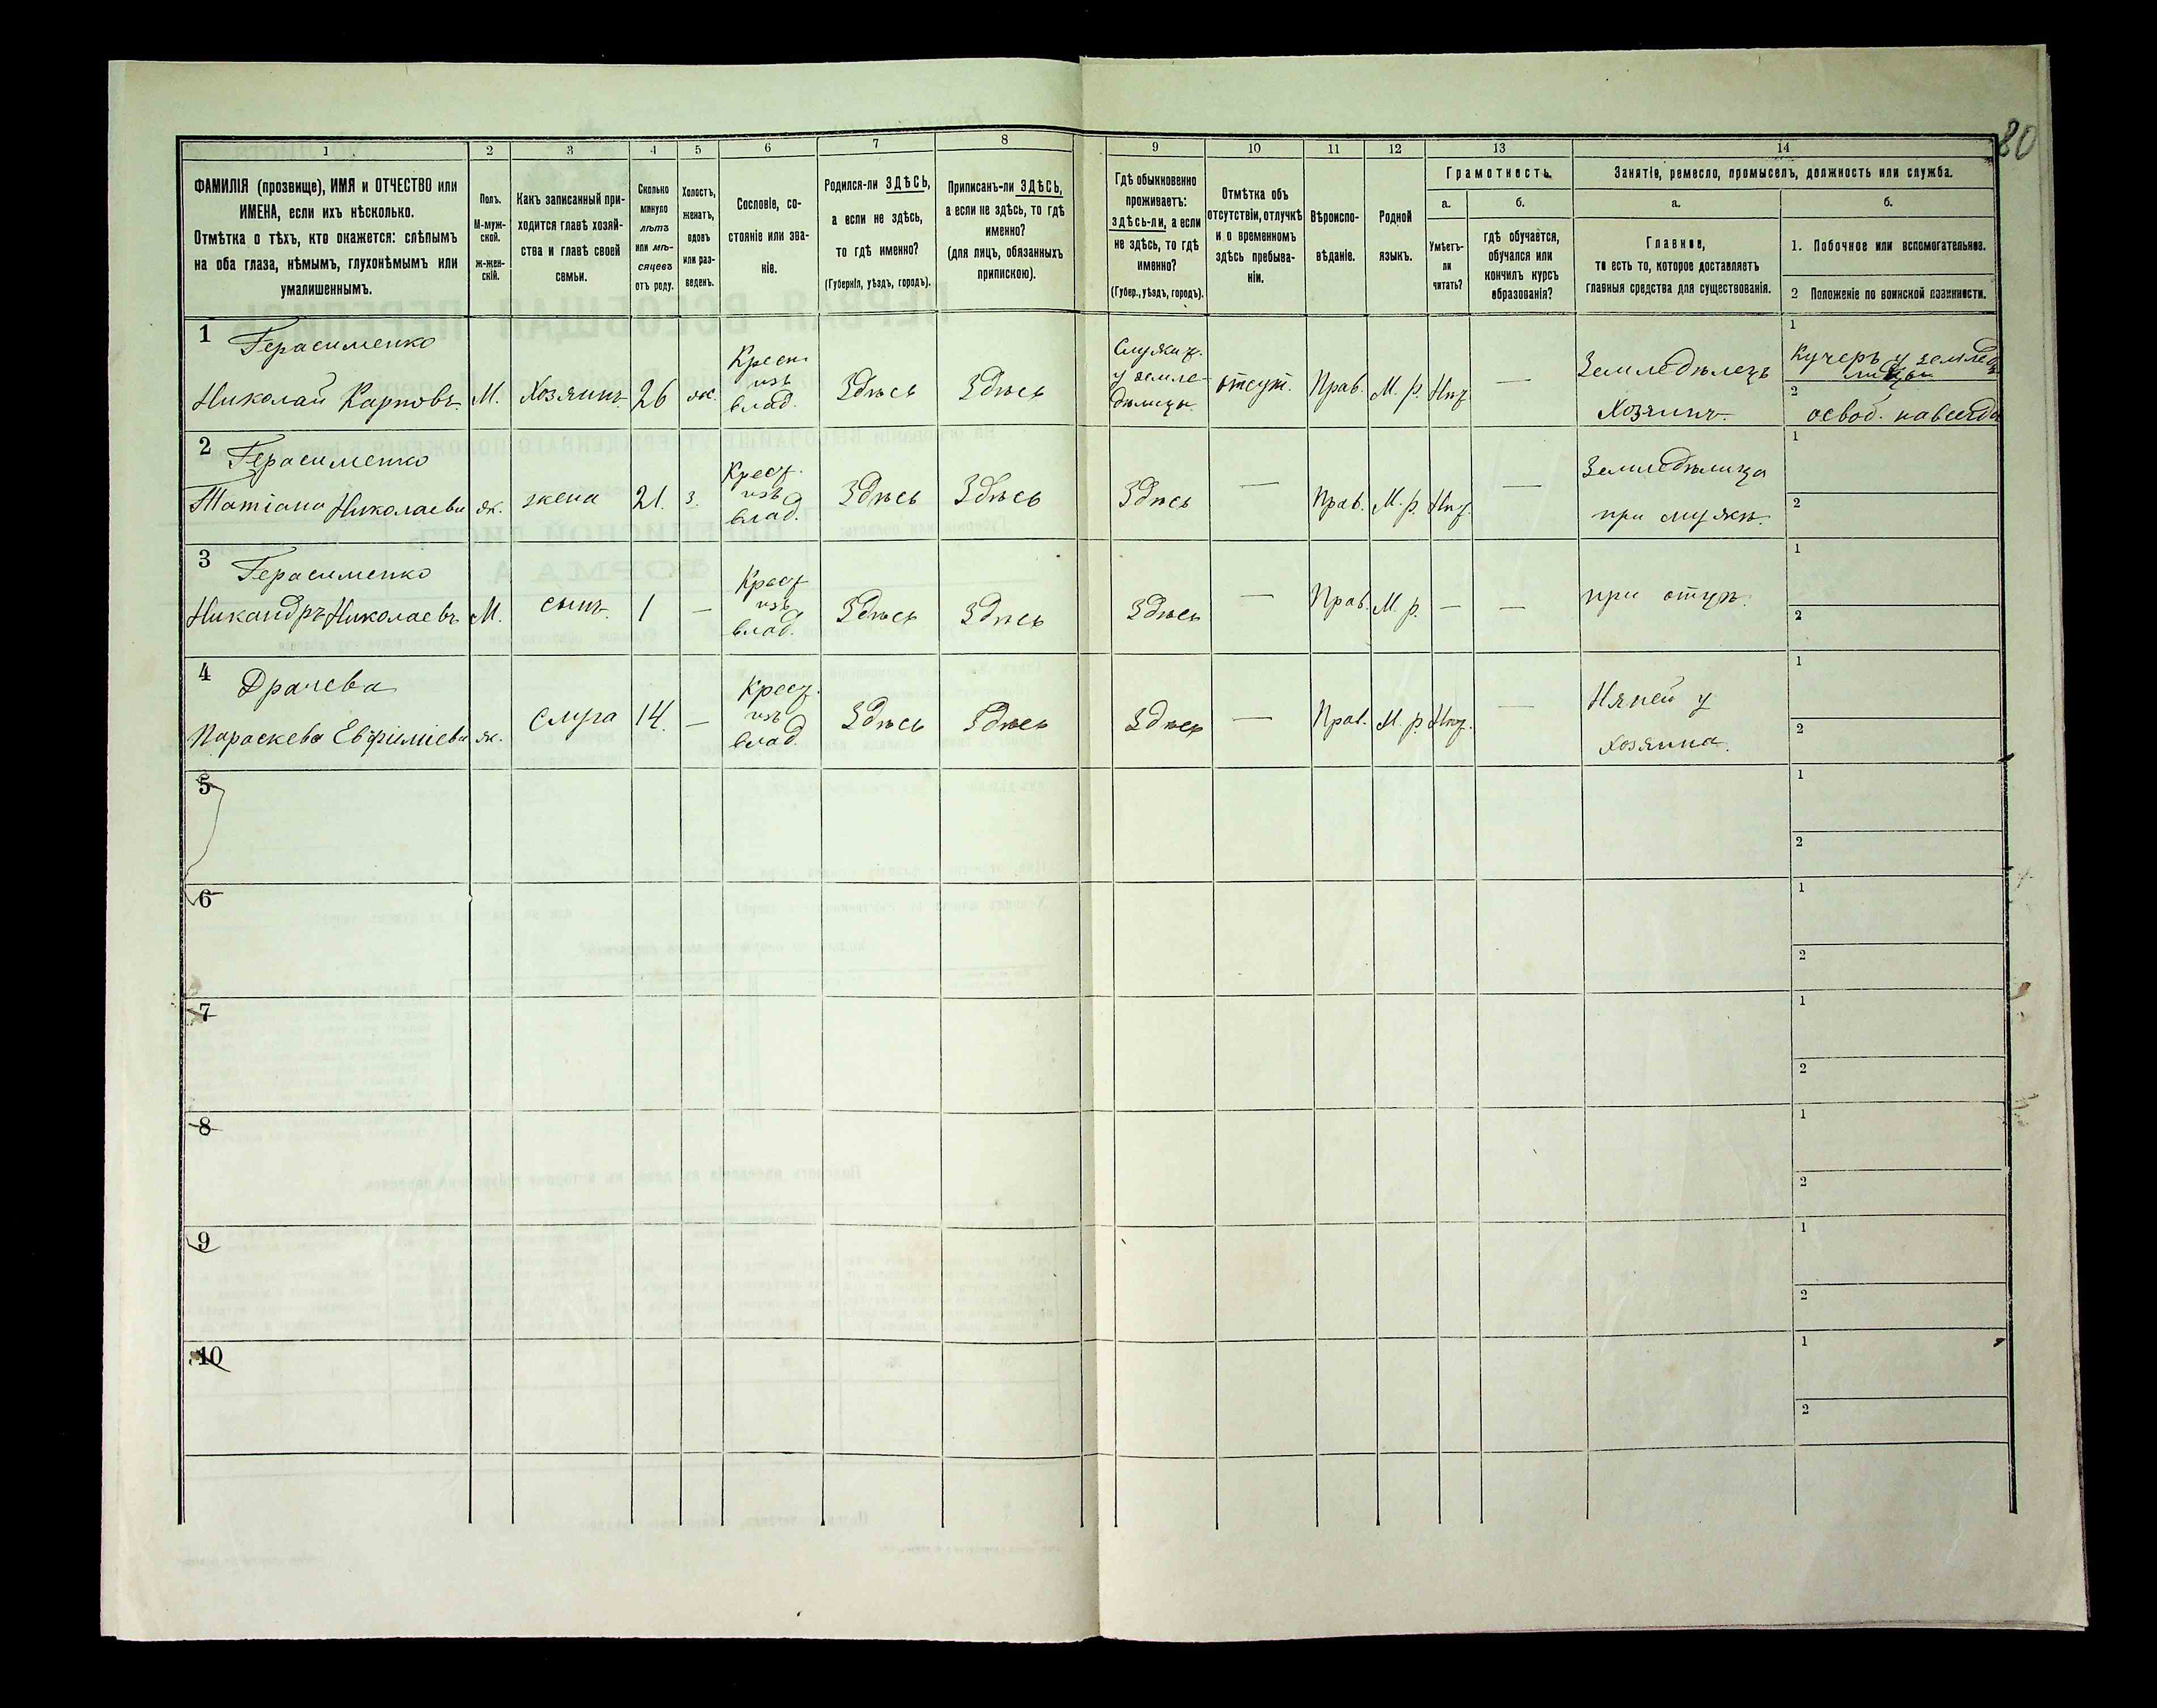 80
1 2 3 4 5 6 7 8 9 10 11 12 13 14
ФАМИЛІЯ (прозвище), ИМЯ и ОТЧЕСТВО или
ИМЕНА, если ихъ нѣсколько.
Отмѣтка о тѣхъ, кто окажется: слѣпымъ
на оба глаза, нѣмымъ, глухонѣмымъ или
умалишеннымъ.
Полъ.
М-муж-
ской.
ж-жен-
скій.
Какъ записанный при-
ходится главѣ хозяй-
ства и главѣ своей
семьи.
Сколько
минуло
лѣтъ
или мѣ-
сяцевъ
отъ роду.
Холостъ,
женатъ,
вдовъ
или раз-
веденъ.
Сословіе, со-
стояніе или зва-
ніе.
Родился-ли ЗДѢСЬ,
а если не здѣсь,
то гдѣ именно?
(Губернія, уѣздъ, городъ).
Приписанъ-ли ЗДѢСЬ,
а если не здѣсь, то гдѣ
именно?
(для лицъ, обязанныхъ
припискою).
Гдѣ обыкновенно
проживаетъ:
здѣсь-ли, а если
не здѣсь, то гдѣ
именно?
(Губер., уѣздъ, городъ).
Отмѣтка объ
отсутствіи, отлучкѣ
и о временномъ
здѣсь пребыва-
ніи.
Вѣроиспо-
вѣданіе.
Родной
языкъ.
Грамотность.
а.
Умѣетъ-
ли
читать?
б.
гдѣ обучается,
обучался или
кончилъ курсъ
образованія?
Занятіе, ремесло, промыселъ, должность или служба.
а.
Главное,
то есть то, которое доставляетъ
главныя средства для существованія.
б.
1. Побочное или вспомогательное.
2 Положеніе по воинской повинности.
1
Герасименко
Николай Карповъ.
М.
Хозяинъ
26
ж.
Крест.
изъ
влад.
Здѣсь
Здѣсь
Служит.
у земле-
отсут.
Прав.
М. р.
Нѣт
—
Земледѣлецъ
Хозяинъ
1
Кучеръ у
2
освоб. навсегда
2
Герасименко
Татіана Николаева
ж.
жена
21.
з.
Крест.
изъ
влад.
Здѣсь
Здѣсь
Здѣсь
—
Прав.
М. р.
Нѣт.
—
Земледѣлица
при мужѣ.
1
2
3
Герасименко
Никандръ Николаевъ
М.
сынъ.
1
—
Крест
изъ
влад.
Здѣсь
Здѣсь
Здѣсь
—
Прав.
М. р.
—
—
при отцѣ.
1
2
4
Драчева
Параскева Евфиміева
ж.
Слуга
14.
—
Крест.
изъ
влад.
Здѣсь
Здѣсь
Здѣсь
—
Прав.
М. р.
Нѣт.
—
Няней у
хозяина.
1
2
5
1
2
6
1
2
7
1
2
8
1
2
9
1
2
10
1
2